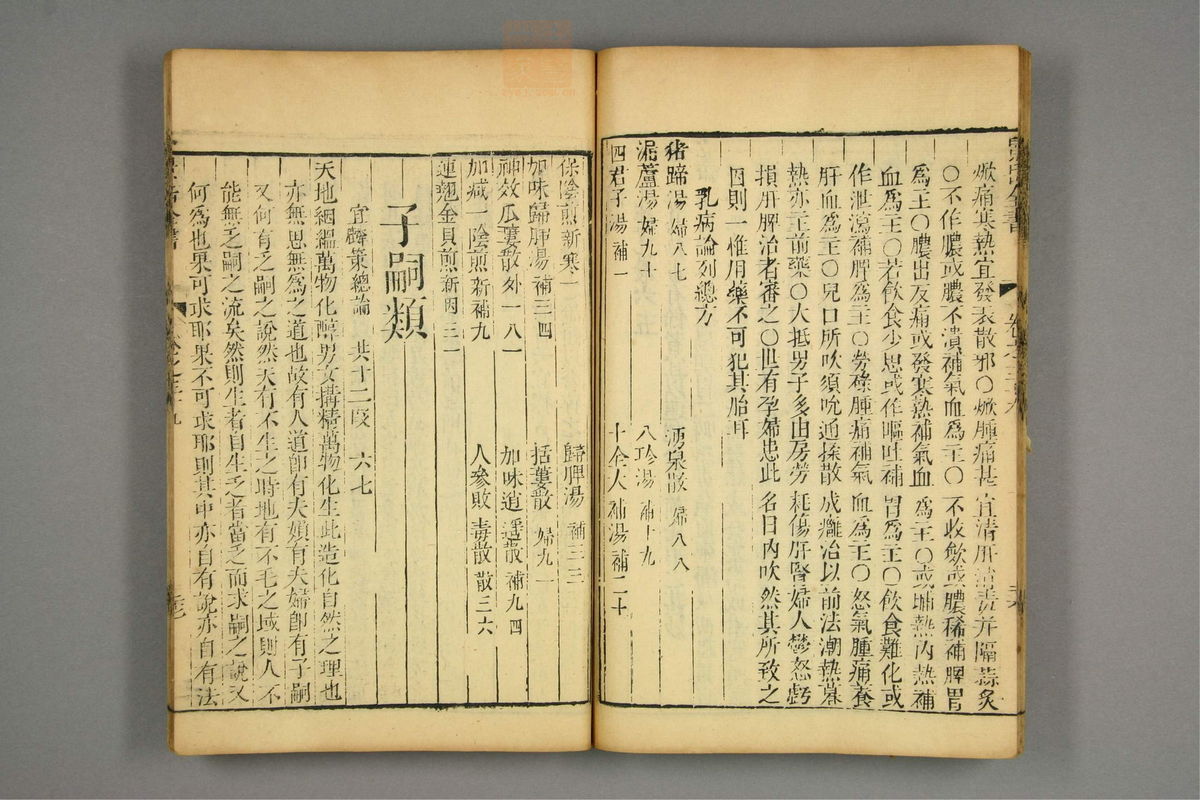 焮痛寒熱宜發表散邪〇焮腫痛甚宜清肝消毒并隔蒜灸
〇不作膿或膿不潰補氣血爲主〇不收斂或膿稀補脾胃
爲主〇膿出反痛或發寒熱補氣血爲主〇或晡熱內熱補
血爲主〇若飲食少思或作嘔吐補胃爲主〇飲食難化或
作泄瀉補脾爲主〇勞碌腫痛補氣血爲主〇怒氣腫痛養
肝血爲主〇兒口所吹須吮通揉散成癰治以前法潮熱暮
熱亦主前藥〇大抵男子多由房勞耗傷肝腎婦人鬱怒虧
損肝脾治者審之〇世有孕婦患此名曰內吹然其所致之
因則一惟用藥不可犯其胎耳
乳病論列總方
猪蹄湯 婦八七 湧泉散 婦八八
漏蘆湯 婦九十 八珍湯 補十九
四君子湯 補一 十全大補湯 補二十
保陰煎 新寒一 歸脾湯 補三二
加味歸脾湯 補三四 括蔞散 婦九一
神效瓜蔞散 外一八一 加味逍遥散 補九四
加減一陰煎 新補九 人參敗毒散 散三六
連翹金貝煎 新因三一
子嗣類
宜麟策總論 共十二段 六七
天地絪緼萬物化醇男女搆精萬物化生此造化自然之理也
亦無思無爲之道也故有人道即有夫婦有夫婦即有子嗣
又何有乏嗣之說然天有不生之時地有不毛之域則人不
能無乏嗣之流矣然則生者自生乏者當乏而求嗣之說又
何爲也果可求耶果不可求耶則其中亦自有說亦自有法